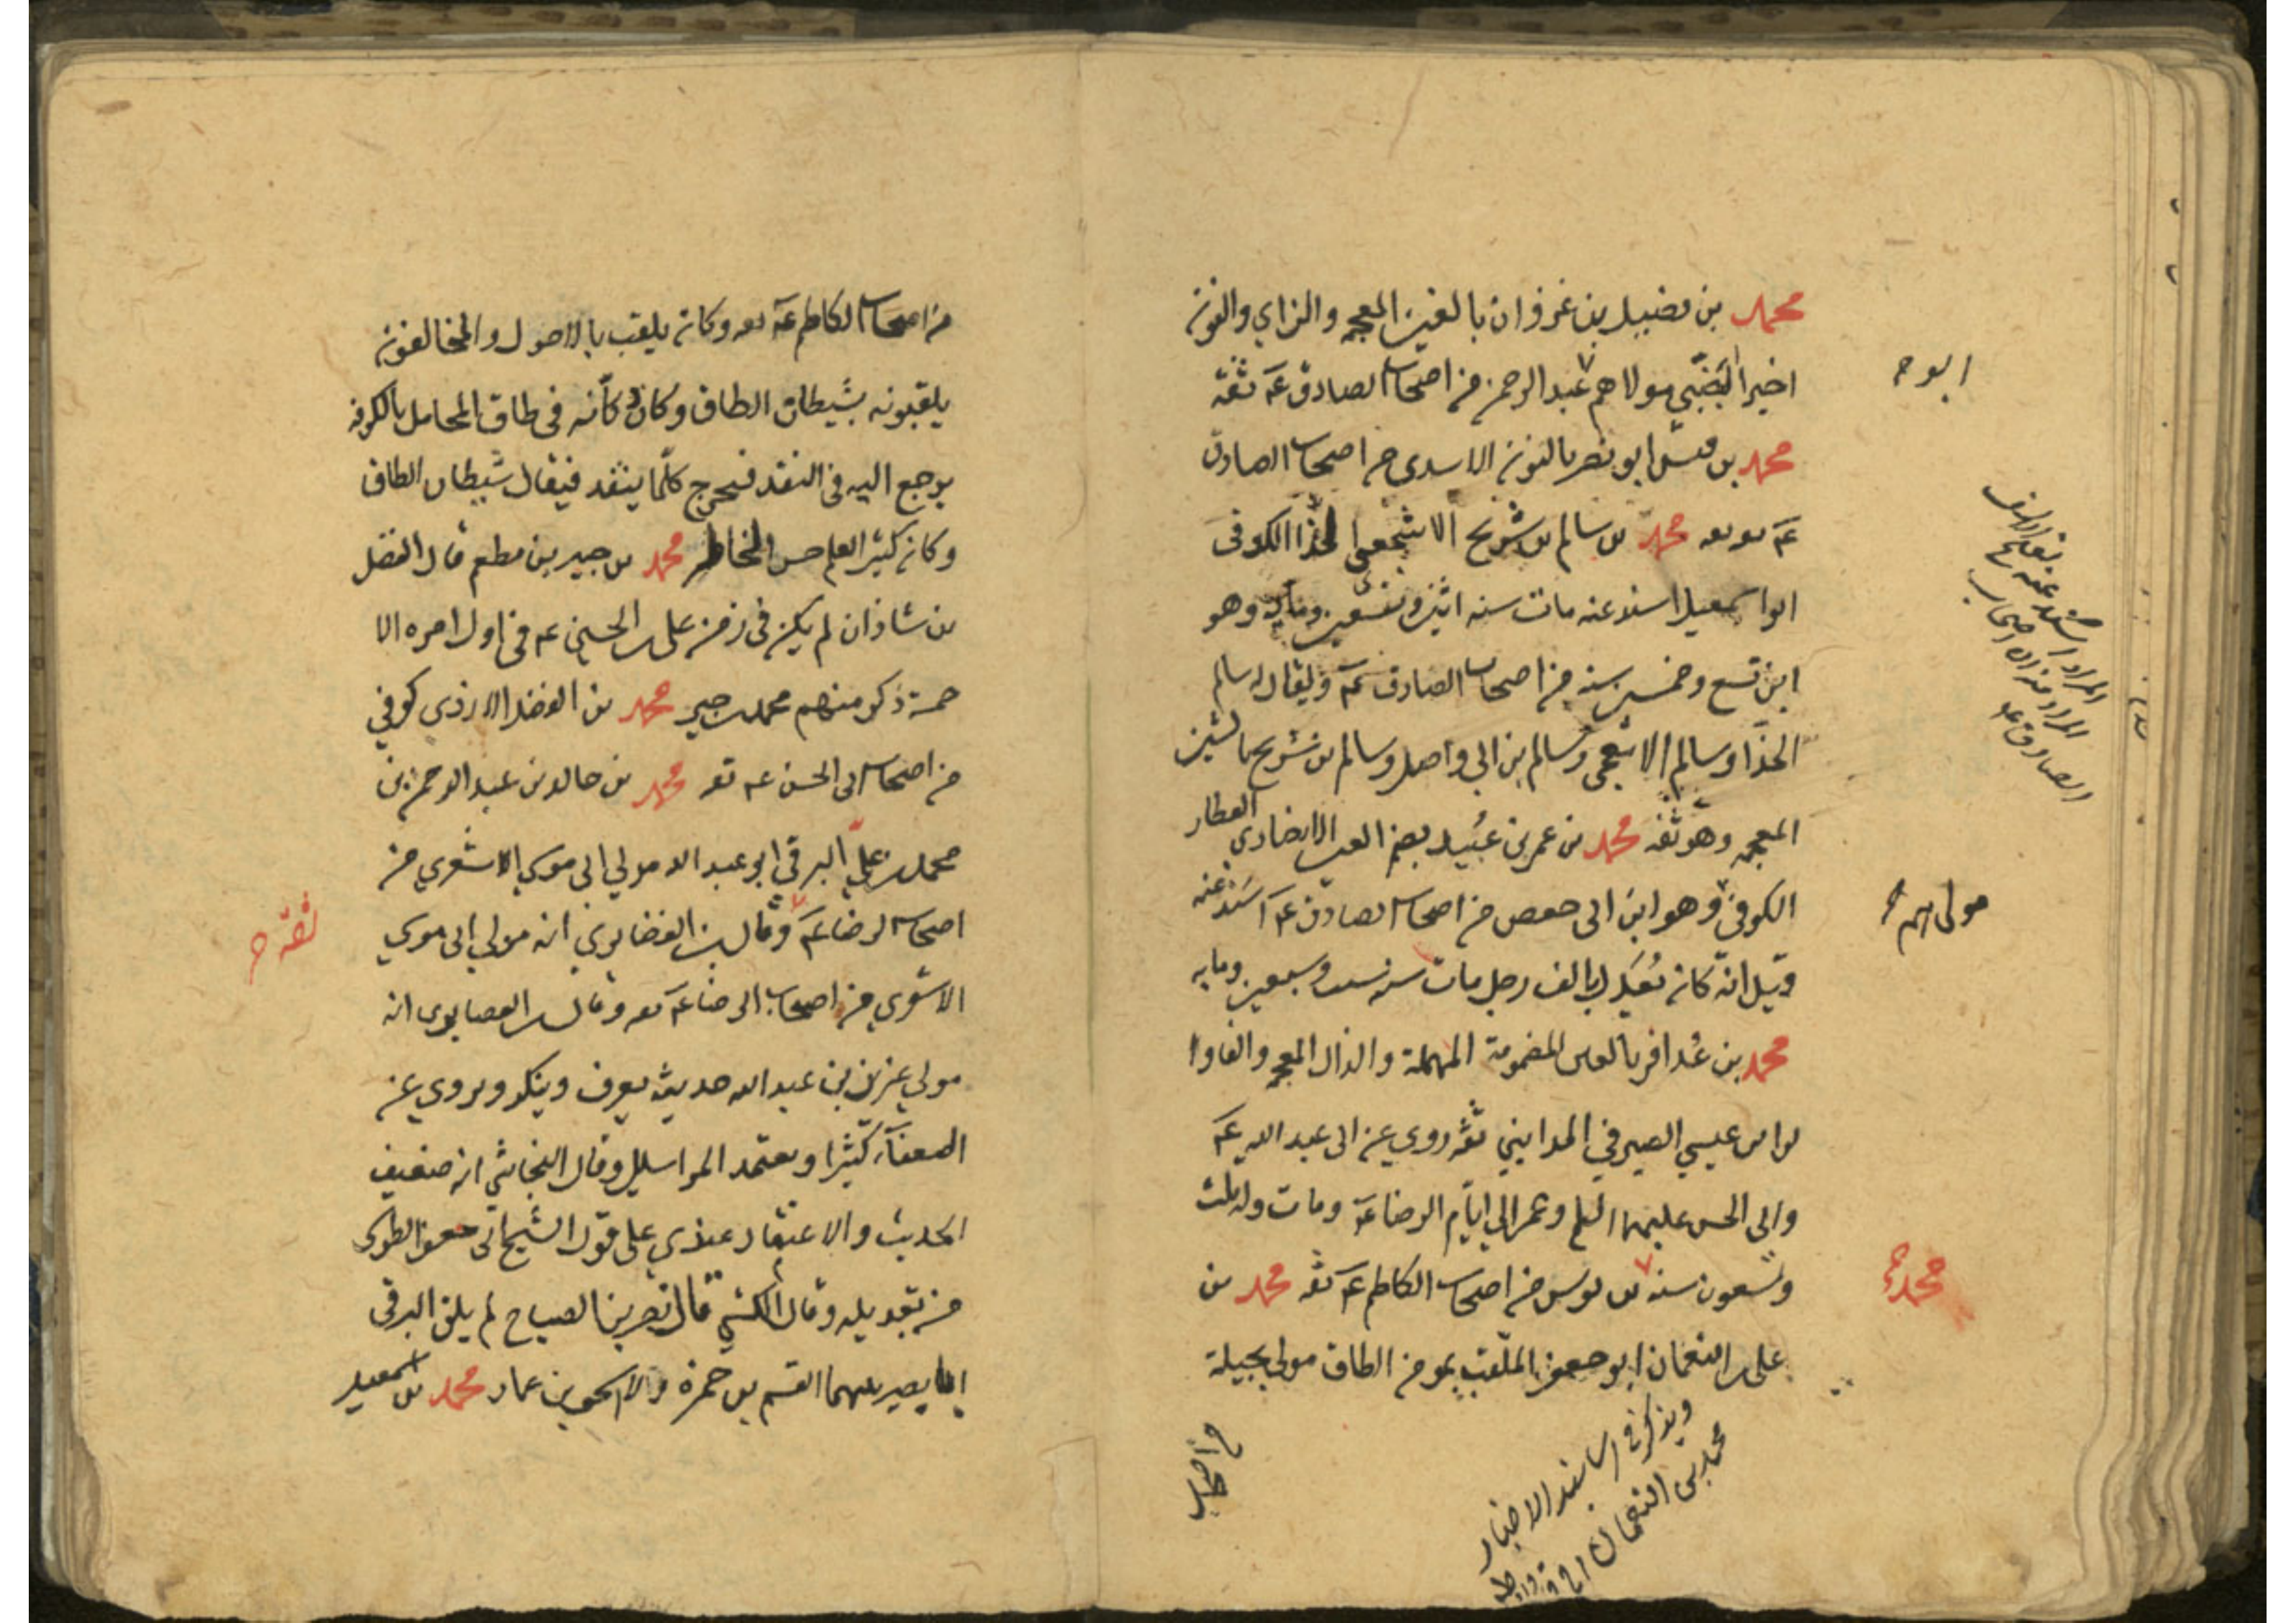 محمد بن فضيل بن غزوان بالغين المعجمه والزاي والنون
اخيرا الضبي مولاهم عبد الرحمن من اصحاب الصادق عه ثقة
محمد بن قيس ابو نصر بالنون الاسدى من اصحاب الصادق
عه محمد بن سالم بن شريح الاشجعي الحذا الكوفى
ابو اسمعيل اسند عنه مات سنه اثنين وتسعين ومايه وهو
ابن تسع وخمسين سنه من اصحاب الصادق عه ويقال له سالم
الحذا وسالم الاشجعي وسالم بن ابي واصل وسالم بن شريح بالشين
المعجمه وهو ثقه محمد بن عمر بن عبيد بضم العين الانصاري العطار
الكوفى وهو ابن ابى حفص من اصحاب الصادق عه اسند عنه
وقيل انه كان يعدل بالف رجل مات سنه ست وسبعين ومايه
محمد بن عذافر بالعين المضمومة المهملة والذال المعجمه والفا والرا
بن عيسي الصيرفي المدايني ثقه روي عن ابى عبد الله عه
وابى الحسن عليهما السلم وعمر الي ايام الرضا عه ومات وله ثلث
وتسعون سنه بن يونس من اصحاب الكاظم عه ثقه محمد بن
على بن النعمان ابو جعفر الملقب بمومن الطاق مولى بجيلة
ابو
اسند عنه
المراد من اصحاب
الصادق عه
مولى
محمد
ويذكر في اسانيد الاخبار
محمد بن النعمان
من اصحاب
من اصحاب الكاظم عه ثقه وكان يلقب بالاحول والمخالفون
يلقبونه بشيطان الطاق وكان دكانه فى طاق المحامل بالكوفه
يرجع اليه فى النقد فيخرج كلما ينتقد فيقال شيطان الطاق
وكان كثير العلم حسن الخاطر محمد بن جبير بن مطعم قال الفضل
بن شاذان لم يكن فى زمن على بن الحسين عه فى اول امره الا
خمسة ذكر منهم محمد بن جبير محمد بن الفضل الازدى كوفي
من اصحاب ابى الحسن عه ثقه محمد بن خالد بن عبد الرحمن بن
محمد بن علي البرقي ابو عبد الله مولي ابى موسي الاشعري من
اصحاب الرضا عه وقال بن الغضايري انه مولي ابى موسي
الاشعري من اصحاب الرضا عه ثقه وقال بن الغضايرى انه
مولي بن عبد الله حديثه يعرف وينكر ويروي عن
الضعفآء كثيرا ويعتمد المراسيل وقال النجاشي انه ضعيف
الحديث والاعتقاد عندي على قول الشيخ ابى جعفر الطوسى
من تعديله وقال الكشى قال نصر بن الصباح لم يلق البرقى
ابا بصير بينهما القسم بن حمزة ولا اسحق بن عمار محمد بن اسمعيل
ثقه